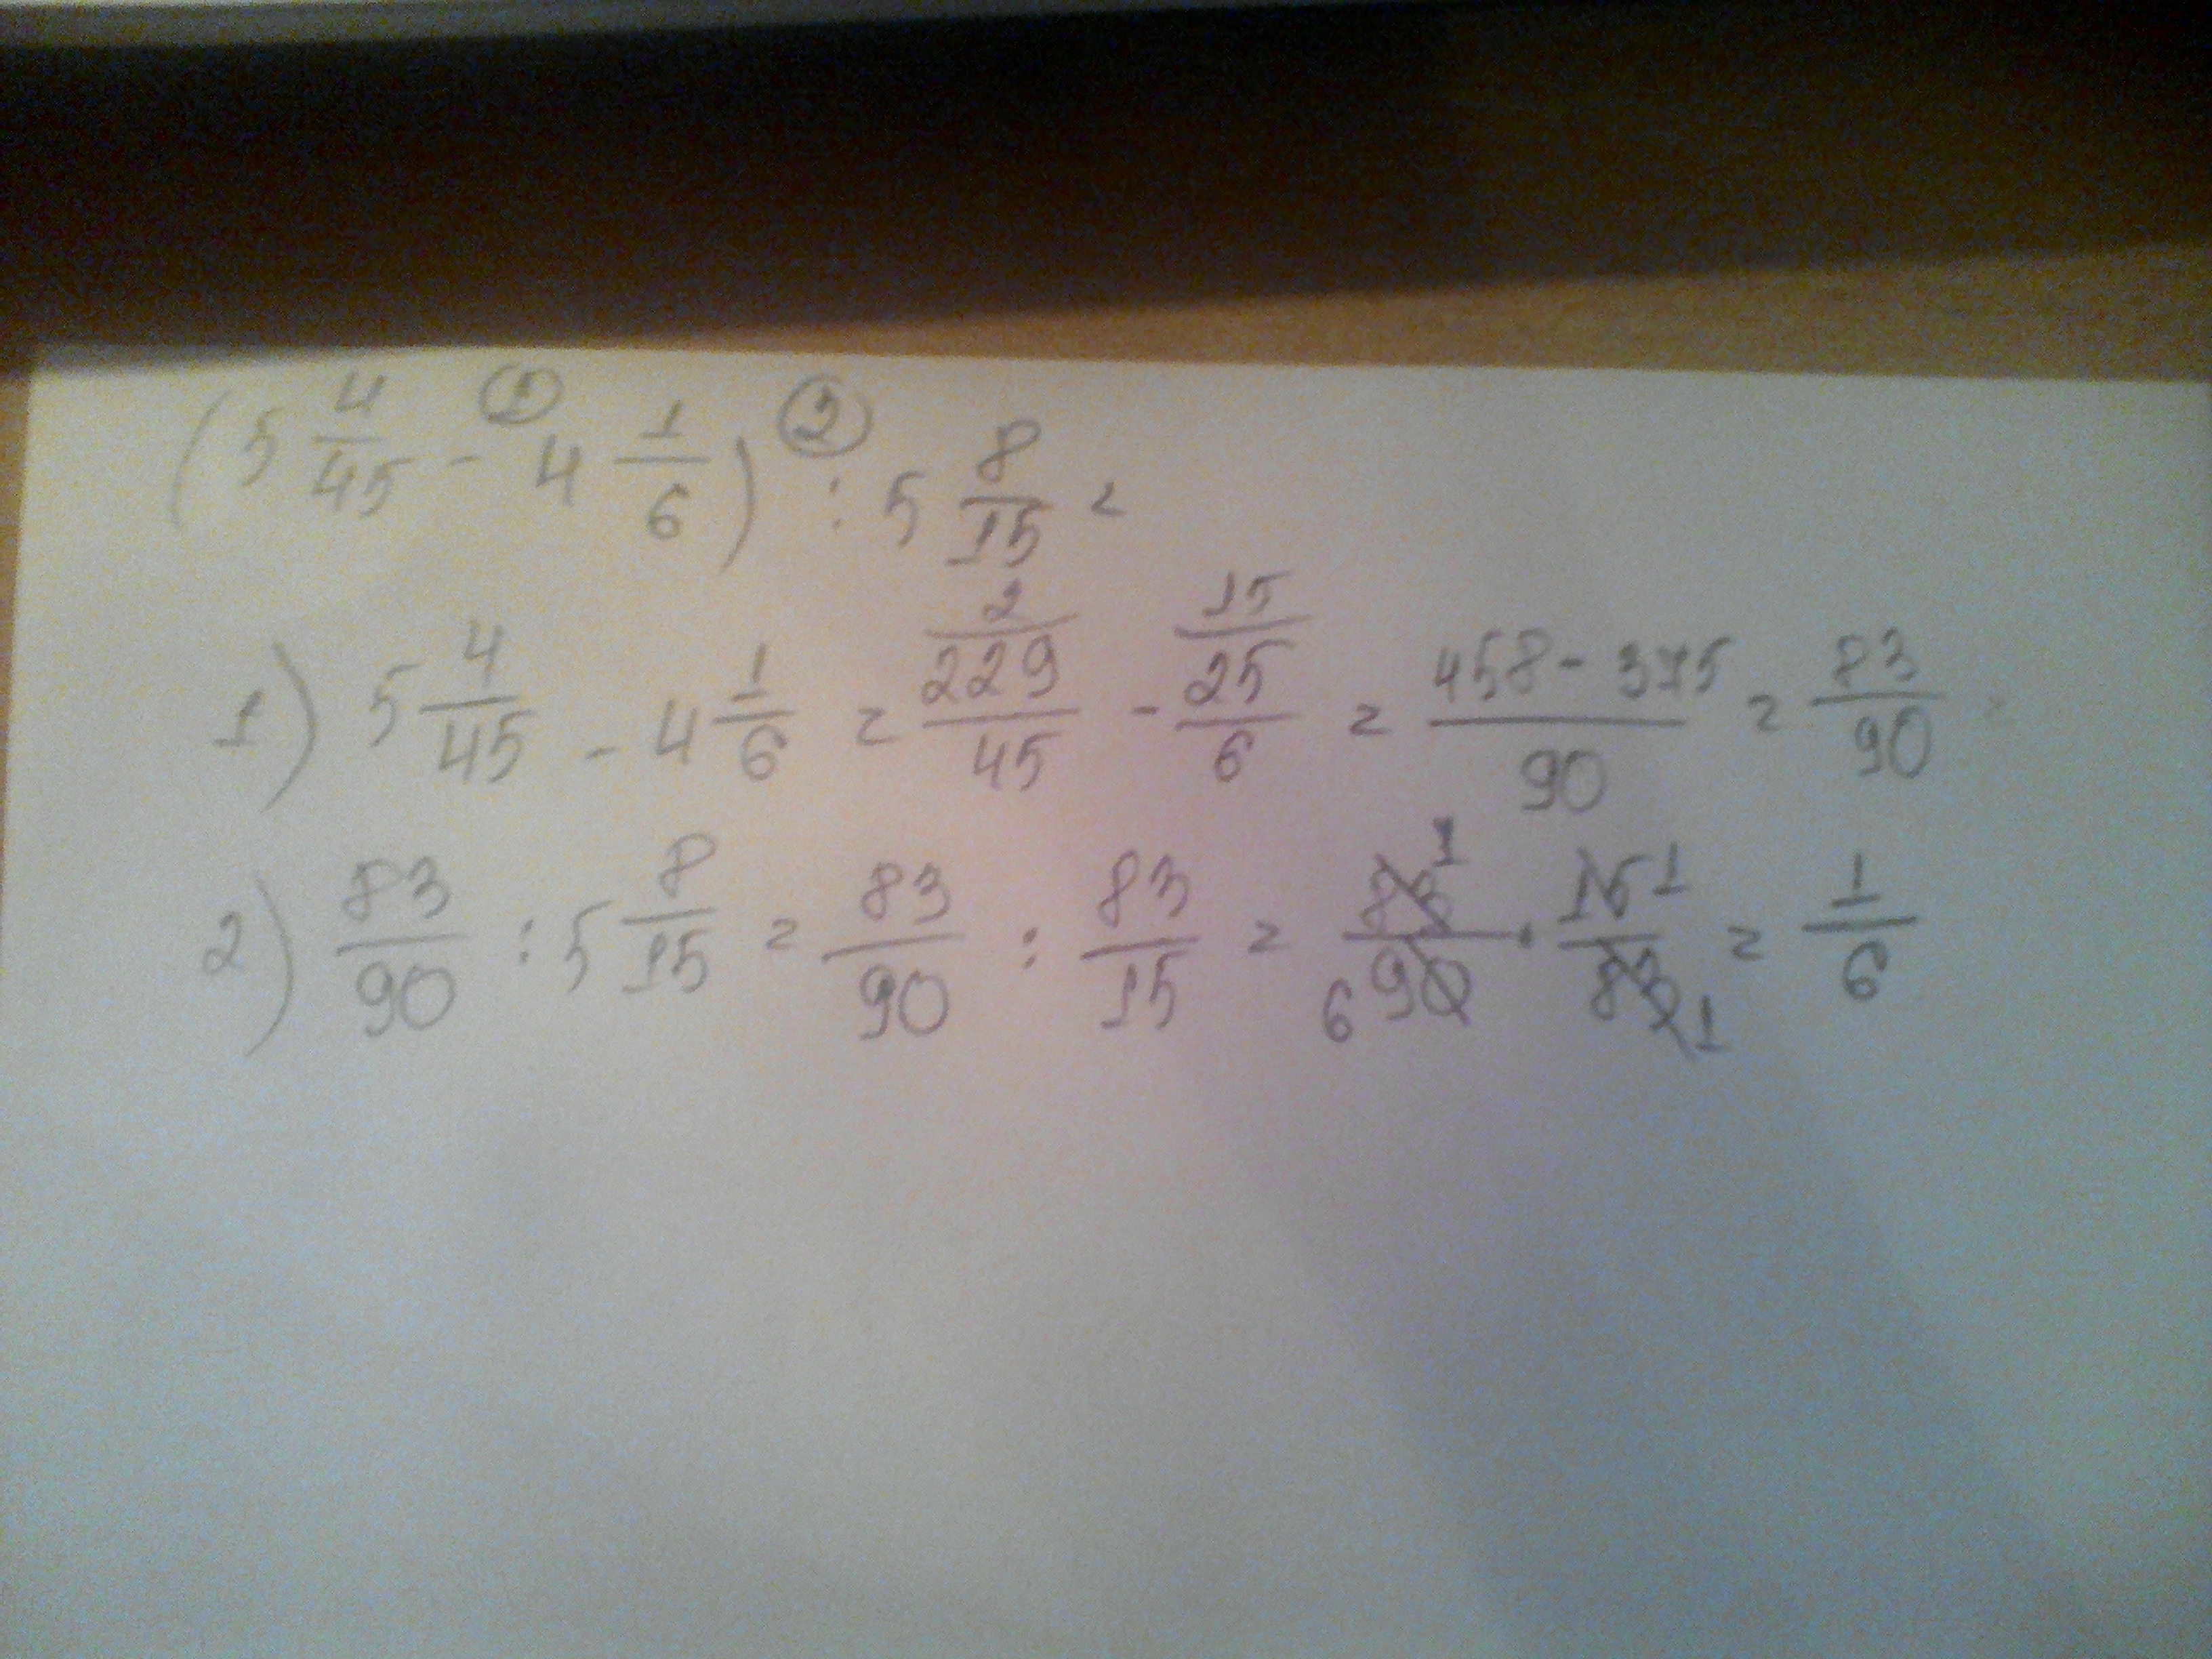 (5 4/45 - ① 4 1/6) ② : 5 8/15 =
1) 5 4/45 - 4 1/6 = 2/229/45 - 15/25/6 = 458-375/90 = 83/90
2) 83/90 : 5 8/15 = 83/90 : 83/15 = 83 1/6 90 · 15 1/83 1 = 1/6